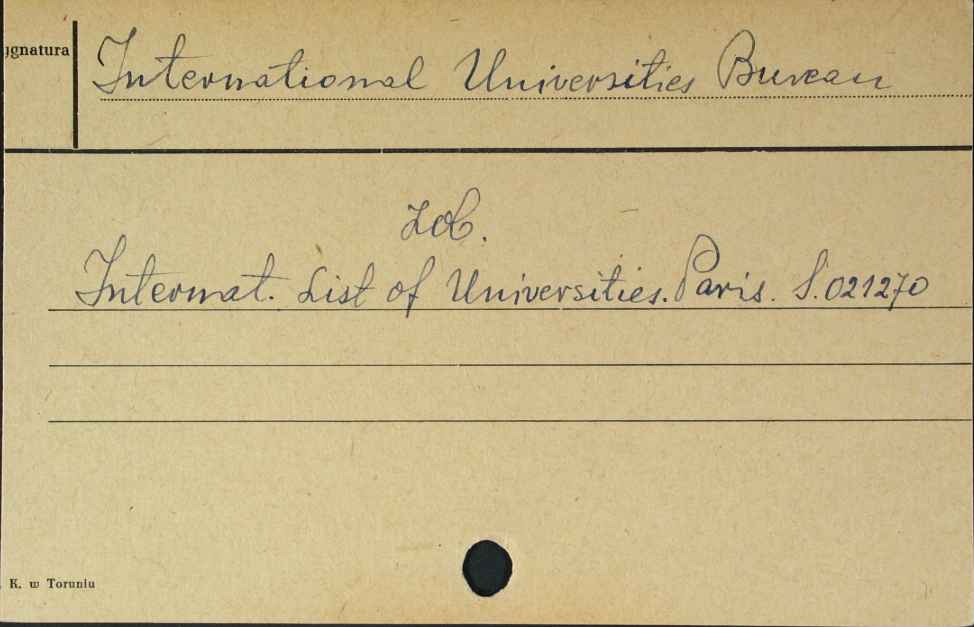 ygnatura
International Universities Bureau
zob.
Internat. List of Universities. Paris. S.021270
K. w Toruniu